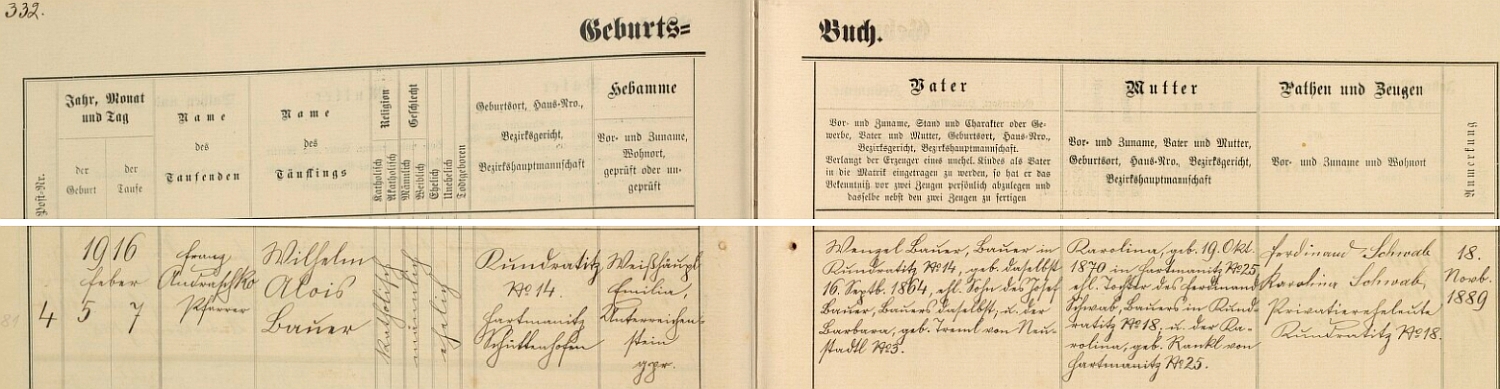 332.
Geburts=
Buch.
Post-Nr.
Jahr, Monat
und Tag
der
Geburt
der
Taufe
Name
des
Taufenden
Name
des
Täuflings
Religion
Katholisch
Akatholisch
Geschlecht
Männlich
Weiblich
Ehelich
Unehelich
Todtgeboren
Geburtsort, Haus-Nro.,
Bezirksgericht,
Bezirkshauptmannschaft
Hebamme
Vor- und Zuname,
Wohnort,
geprüft oder un-
geprüft
Vater
Vor- und Zuname, Stand und Charakter oder Ge-
werbe, Vater und Mutter, Geburtsort, Haus-Nro.,
Bezirksgericht, Bezirkshauptmannschaft.
Verlangt der Erzeuger eines unehel. Kindes als Vater
in die Matrik eingetragen zu werden, so hat er das
Bekenntniß vor zwei Zeugen persönlich abzulegen und
dasselbe nebst den zwei Zeugen zu fertigen
Mutter
Vor- und Zuname, Vater und Mutter,
Geburtsort, Haus-Nro., Bezirksgericht,
Bezirkshauptmannschaft
Pathen und Zeugen
Vor- und Zuname und Wohnort
Anmerkung
4
1916
feber
5 7
Franz
Andraschko
Pfarrer
Wilhelm
Alois
Bauer
katholisch
männlich
ehelich
Kundratitz
№ 14.
Hartmanitz
Schüttenhofen
Weißhäupl
Emilia,
Unterreichen-
stein
gpr.
Wenzel Bauer, Bauer in
Kundratitz № 14, geb. daselbst
16. Septb. 1864, ehl. Sohn des Josef
Bauer, Bauers daselbst, u. der
Barbara, geb. Treml von Neu-
stadtl № 3.
Karolina, geb. 19. Okt.
1870 in Hartmanitz № 25,
ehl. Tochter des Ferdinand
Schwab, Bauers in Kund-
ratitz № 18, u. der Ka-
rolina, geb. Rankl von
Hartmanitz № 25.
Ferdinand Schwab
Karolina Schwab,
Privatiereheleute
Kundratitz № 18.
18.
Novb.
1889